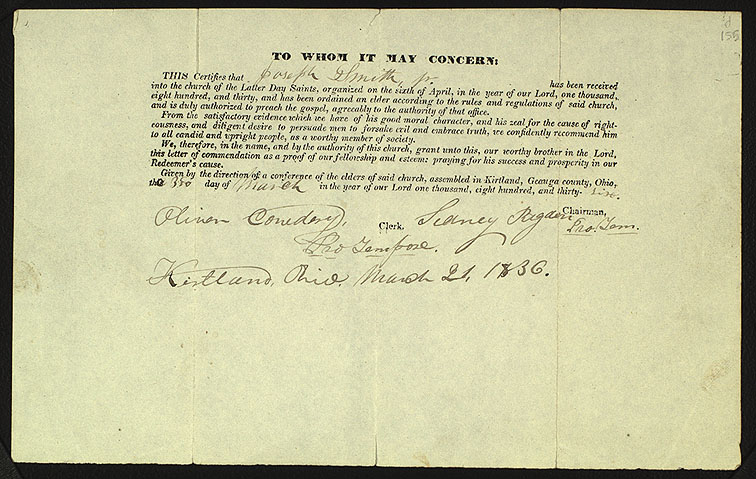 155
TO WHOM IT MAY CONCERN:
THIS Certifies that Joseph Smith, jr. has been received
into the church of the Latter Day Saints, organized on the sixth of April, in the year of our Lord, one thousand,
eight hundred, and thirty, and has been ordained an elder according to the rules and regulations of said church,
and is duly authorized to preach the gospel, agreeably to the authority of that office.
From the satisfactory evidence which we have of his good moral character, and his zeal for the cause of right-
eousness, and diligent desire to persuade men to forsake evil and embrace truth, we confidently recommend him
to all candid and upright people, as a worthy member of society.
We, therefore, in the name, and by the authority of this church, grant unto this, our worthy brother in the Lord,
this letter of commendation as a proof of our fellowship and esteem: praying for his success and prosperity in our
Redeemer's cause.
Given by the direction of a conference of the elders of said church, assembled in Kirtland, Geauga county, Ohio,
the 3rd day of March in the year of our Lord one thousand, eight hundred, and thirty- six.
Oliver Cowdery, Clerk. Sidney Rigdon Chairman,
Pro Tempore. Pro. Tem.
Kirtland, Ohio. March 21, 1836.